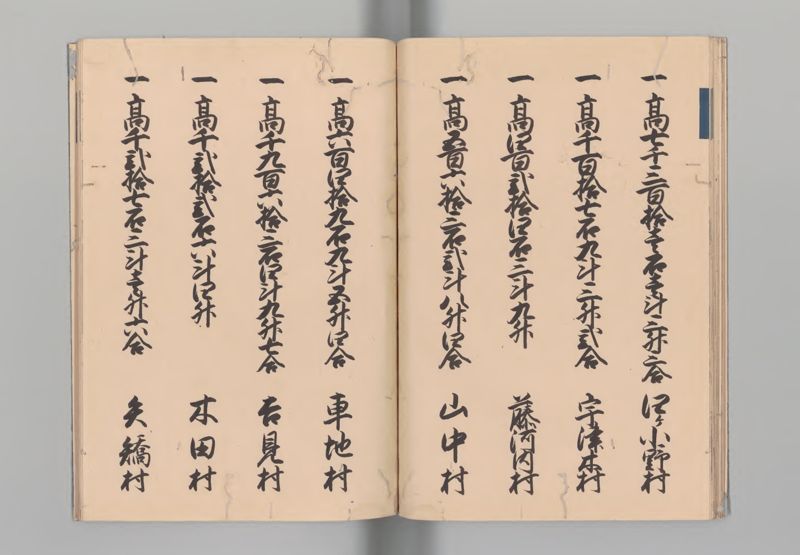 一 高七千三百拾壱石壱斗三升三合 四ヶ小野村
一 高千百拾七石九斗三升弐合 宇津木村
一 高四百弐拾四石三斗九升 藤河内村
一 高五百六拾三石弐斗八升四合 山中村
一 高六百四拾九石九斗五升四合 車地村
一 高千九百六拾三石四斗九升七合 吉見村
一 高千弐拾弐石六斗四升 木田村
一 高千弐拾七石三斗壱升六合 矢矯村